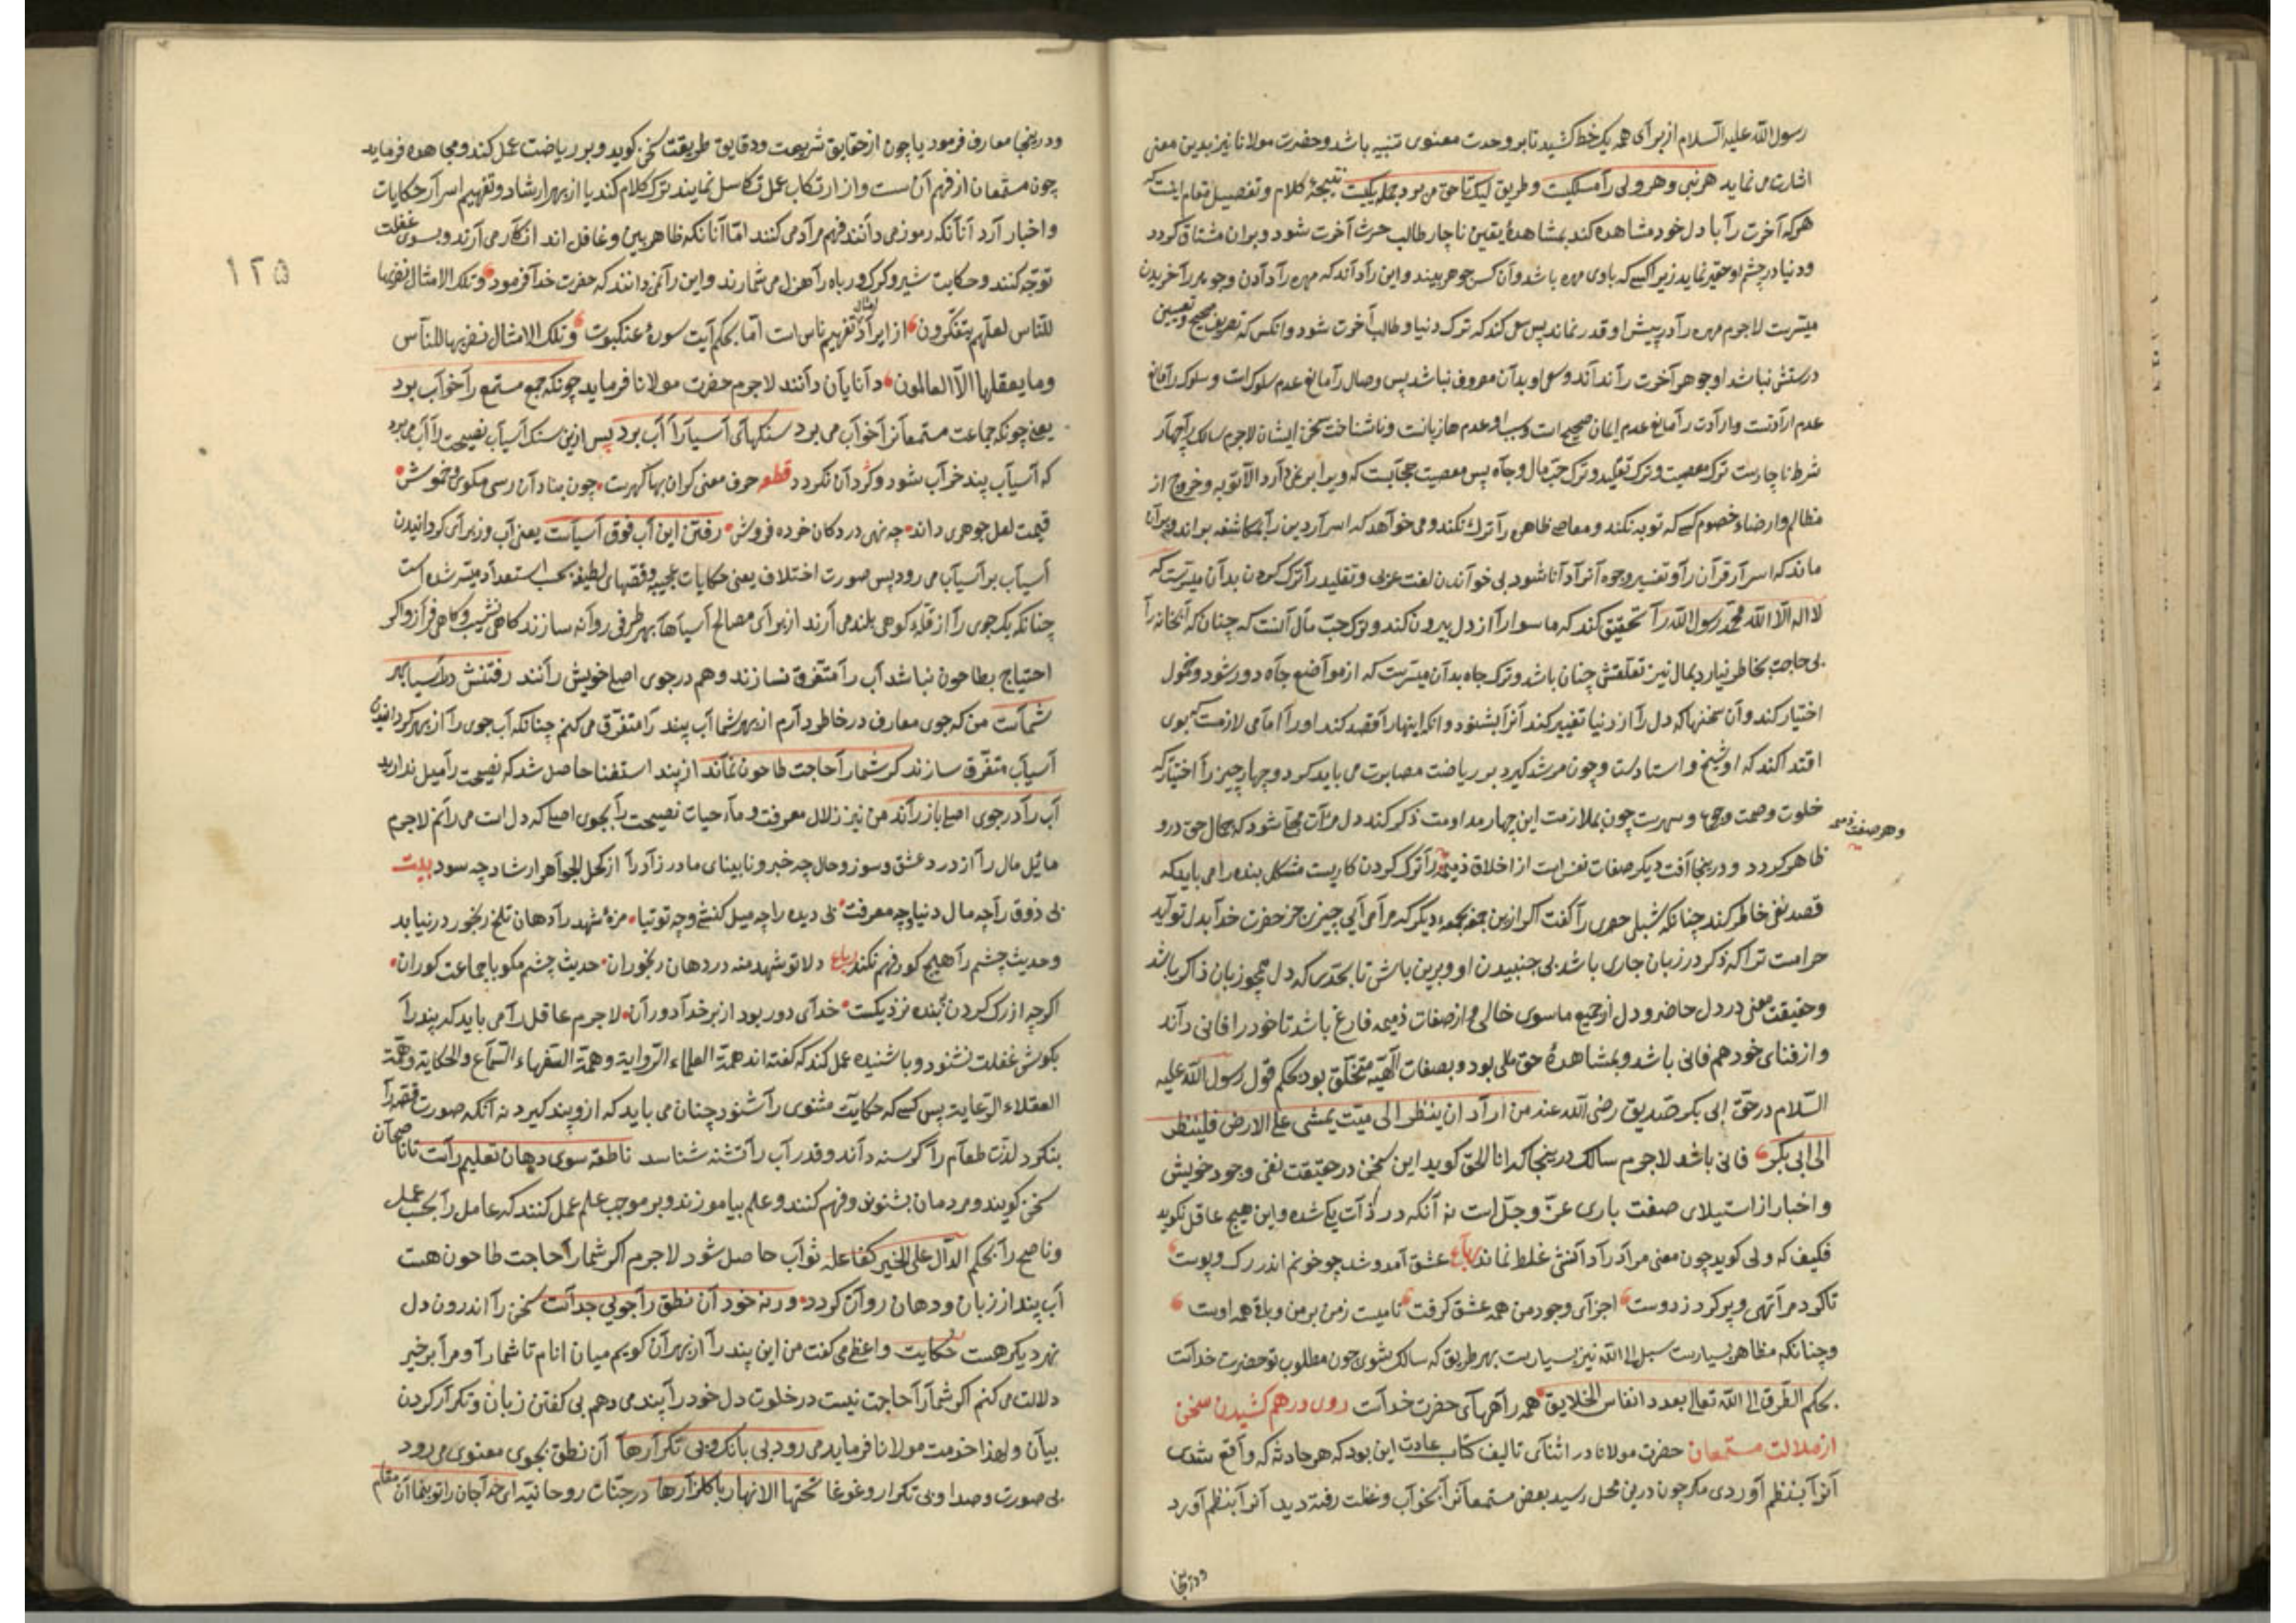 رسول الله علیه السلام از برای همه یک خط کشید تا بر وحدت معنوی تنبیه باشد و حضرت مولانا نیز بدین معنی
اشارت می نماید هر نبی و هر ولی را مسلکیست و طریق لیک تا حق می برد جمله یکیست نتیجۀ کلام و تفصیل مقام اینست که
هر که آخرت را با دل خود مشاهده کند بمشاهدۀ یقین ناچار طالب حرث آخرت شود و بران مشتاق کردد
ودنیا در چشم او حقیر نماید زیرا کسے که باوی مهره باشد وآن کس جوهر بیند و این را داند که مهره را دادن وجوهر را خریدن
میسرست لاجرم مهره را در پیش او قدر نماند پس سعی کند که ترک دنیا و طالب آخرت شود وانکس که تعریف صحیح و تعیین
درستش نباشد او جوهر آخرت را نداند وسعی او بدآن معروف نباشد پس وصال را مانع عدم سلوک است و سلوک را مانع
عدم ارادتست وارادت را مانع عدم ایمان صحیح است وسبب او عدم هازیانست وناشناخت سخن ایشان لاجرم سالک را چهار
شرط ناچارست ترک معصیت وترک تقلید وترک حبّ مال وجاه پس معصیت حجابیست که ویرا بر نمی دارد الا توبه وخروج از
مظالم وارضاء خصوم کسے که توبه نکند ومعاصی ظاهر را ترک نکند ومی خواهد که اسرار دین را بمکاشفه بداند ویرآن
ماند که اسرار قرآن را وتفسیر وجوه آنرا دانا شود بی خواندن لغت عربی وتقلید را ترک کردن بدآن میسّرست که
لا اله الا الله محمّد رسول الله را تحقیق کند که ماسوا را از دل بیرون کند وترک حبّ مال آنست که چنان که آبخانه را
بی حاجت بخاطر نیارد بمال نیز تعلقش چنان باشد وترک جاه بدآن میسرست که از مواضع جاه دور شود وخمول
اختیار کند وآن سخنهاکه دل را از دنیا تغییر کند آنرا بشنود وانکه اینهارا قصد کند اورا امامی لازمست که بوی
اقتدا کند که او شیخ و استادست وچون مرشد کیرد بر ریاضت مصابرت می باید کرد وچهار چیز را اختیار که
خلوت وصمت وجوع و سهرست چون بملازمت این چهار مداومت ذکر کند دل مرآت مجلّا شود که جمال حق درو
وهر صفت ذمیمه
ظاهر کردد ودرینجا آفت دیکر صفات نفس است از اخلاق ذمیمه را ترک کردن کاریست مشکل بنده را می باید که
قصد نفی خاطر کند چنانکه شبلی حصری را کفت اکر ازین جمعه بجمعۀ دیکر که مرا می آیی چیزی جز حضرت خدا بدل تو آید
حرامست ترا که ذکر در زبان جاری باشد بی جنبیدن او وبرین باش تا بحدّی که دل همچو زبان ذاکر باشد
وحقیقت معنی در دل حاضر ودل از جمیع ماسوی خالی واز صفات ذمیمه فارغ باشد تا خود را فانی داند
واز فنای خود هم فانی باشد وبمشاهدۀ حق ملی بود وبصفات الهیّه متخلّق بود بحکم قول رسول الله علیه
السّلام در حقّ ابی بکر صدیق رضی الله عنه من اراد ان ینظر الی میّت یمشی علی الارض فلینظر
الی ابی بکر فانی باشد لاجرم سالک درینجا که انا الحق کوید این سخن در حقیقت نفی وجود خویش
واخبار از استیلای صفت باری عزّ وجلّ است نه آنکه در ذات یکی شده واین هیچ عاقل نکوید
فکیف که ولی کوید چون معنی مراد را دانستی غلط نماند رباعی عشق آمد وشد چو خونم اندر رک وپوست
تاکرد مرا تهی وپر کرد ز دوست اجزای وجود من همه عشق کرفت نامیست ز من بر من وباقی همه اوست
وچنانکه مظاهر بسیارست سبل الی الله نیز بسیارست بهر طریق که سالک شوی چون مطلوب تو حضرت خداست
بحکم الطّرق الی الله تعالی بعدد انفاس الخلایق همه راههای حضرت خداست روی درهم کشیدن سخن
از ملالت مستمعان حضرت مولانا در اثنای تالیف کتاب عادت این بود که هر حادثه که واقع شدی
آنرا بنظم آوردی مکر چون درین محل رسید بعض مستمعانرا بخواب وغفلت رفته دید آنرا بنظم آورد
ودرینجا
ودرینجا معارف فرمود یا چون از حقایق شریعت ودقایق طریقت سخن کوید وبر ریاضت عمل کند ومجاهده فرماید
چون مستمعان از فهم آن ست واز ارتکاب عمل تکاسل نمایند ترک کلام کند یا از بهر ارشاد وتفهیم اسرار حکایات
واخبار آرد آنانکه رموز می دانند فهم مراد می کنند امّا آنانکه ظاهر بین وغافل اند انکار می آرند وبسوی غفلت
توجّه کنند وحکایت شیر وکرک وروباه را هزل می شمارند واین را نمی دانند که حضرت خدا فرمود وتلک الامثال نضربها
۱۲۵
للنّاس لعلّهم یتفکّرون از ایراد امثال تفهیم ناس است امّا بحکم آیت سورۀ عنکبوت وتلک الامثال نضربها للناس
وما یعقلها الا العالمون دانایان دانند لاجرم حضرت مولانا فرماید چونکه جمع مستمع را خواب برد
یعنی چونکه جماعت مستمعانرا خواب می برد سنکهای آسیا را آب برد پس ازین سنک آسیاب نصیحت را آب می برد
که آسیاب پند خراب شود وکردان نکردد قطعه حرف معنی کران بها کهرست چون بنادان رسی مکوی وخموش
قیمت لعل جوهری داند چه نهی در دکان خرده فروش رفتن این آب فوق آسیاست یعنی آب وزبرای کردانیدن
آسیاب بر آسیاب می رود پس صورت اختلاف یعنی حکایات عجیبه وقصّهای لطیفه بحسب استعداد میسّر شده است
چنانکه یک جوی را از قلّۀ کوهی بلند می آرند از برای مصالح آسیاها بهر طرفی روانه سازند کاهی نشیب وکاهی فراز واکر
احتیاج بطاحون نباشد آب را متفرّق نسازند وهم در جوی اصلی خویش رانند رفتنش در آسیا بهر
شماست من که جوی معارف در خاطر دارم از بهر شما آب پند را متفرّق می کنم چنانکه آب جوی را از بهر کردانیدن
آسیاب متفرّق سازند کر شمارا حاجت طاحون نماند از پند استغنا حاصل شد که نصیحت را میل ندارید
آب را در جوی اصلی باز راند من نیز زلال معرفت و ماء حیات نصیحت را بجوی اصلی که دل است می رانم لاجرم
مائل مال را از درد عشق وسوز وحال چه خبر ونابینای مادرزاد را از کحل الجواهر ارشاد چه سود بیت
بی ذوق را چه مال دنیا وچه معرفت بی دیده را چه میل کشی وچه توتیا مزۀ شهد را دهان تلخ رنجور در نیابد
وحدیث چشم را هیچ کور فهم نکند رباعی دلا تو شهد منه در دهان رنجوران حدیث چشم مکو با جماعت کوران
اکرچه از رک کردن ببنده نزدیکست خدای دور بود از بر خدا دوران لاجرم عاقل را می باید که پند را
بکوش غفلت نشنود وبا شنیده عمل کند که کفته اند همّة العلماء الرّوایة وهمّة السّفهاء السّماع والحکایة وهمّة
العقلاء الرّعایة پس کسے که حکایت مثنوی را شنود چنان می باید که ازو پند کیرد نه آنکه صورت قصّه را
بنکرد لذّت طعام را کرسنه داند وقدر آب را تشنه شناسد ناطقه سوی دهان تعلیم راست تا ناصحان
سخن کویند ومردمان بشنوند وفهم کنند وعلم بیاموزند وبر موجب علم عمل کنند که عامل را بحسب عمل
وناصح را بحکم الدّال علی الخیر کفاعله ثواب حاصل شود لاجرم اکر شمارا حاجت طاحون هست
آب پند از زبان ودهان روان کردد ورنه خود آن نطق را جویی جداست سخن را اندرون دل
نهر دیکر هست حکایت واعظی می کفت من این پند را از بهر آن کویم میان انام تا شمارا ومرا بر خیر
دلالت می کنم اکر شمارا حاجت نیست در خلوت دل خود را پند می دهم بی کفتن زبان وتکرار کردن
بیان ولهذا خدمت مولانا فرماید می رود بی بانک وبی تکرارها آن نطق بجوی معنوی می رود
بی صورت وصدا وبی تکرار وغوغا تحتها الانهار با کلزارها در جنّات روحانیّه ای خدا جان را تو بنما آن مقام